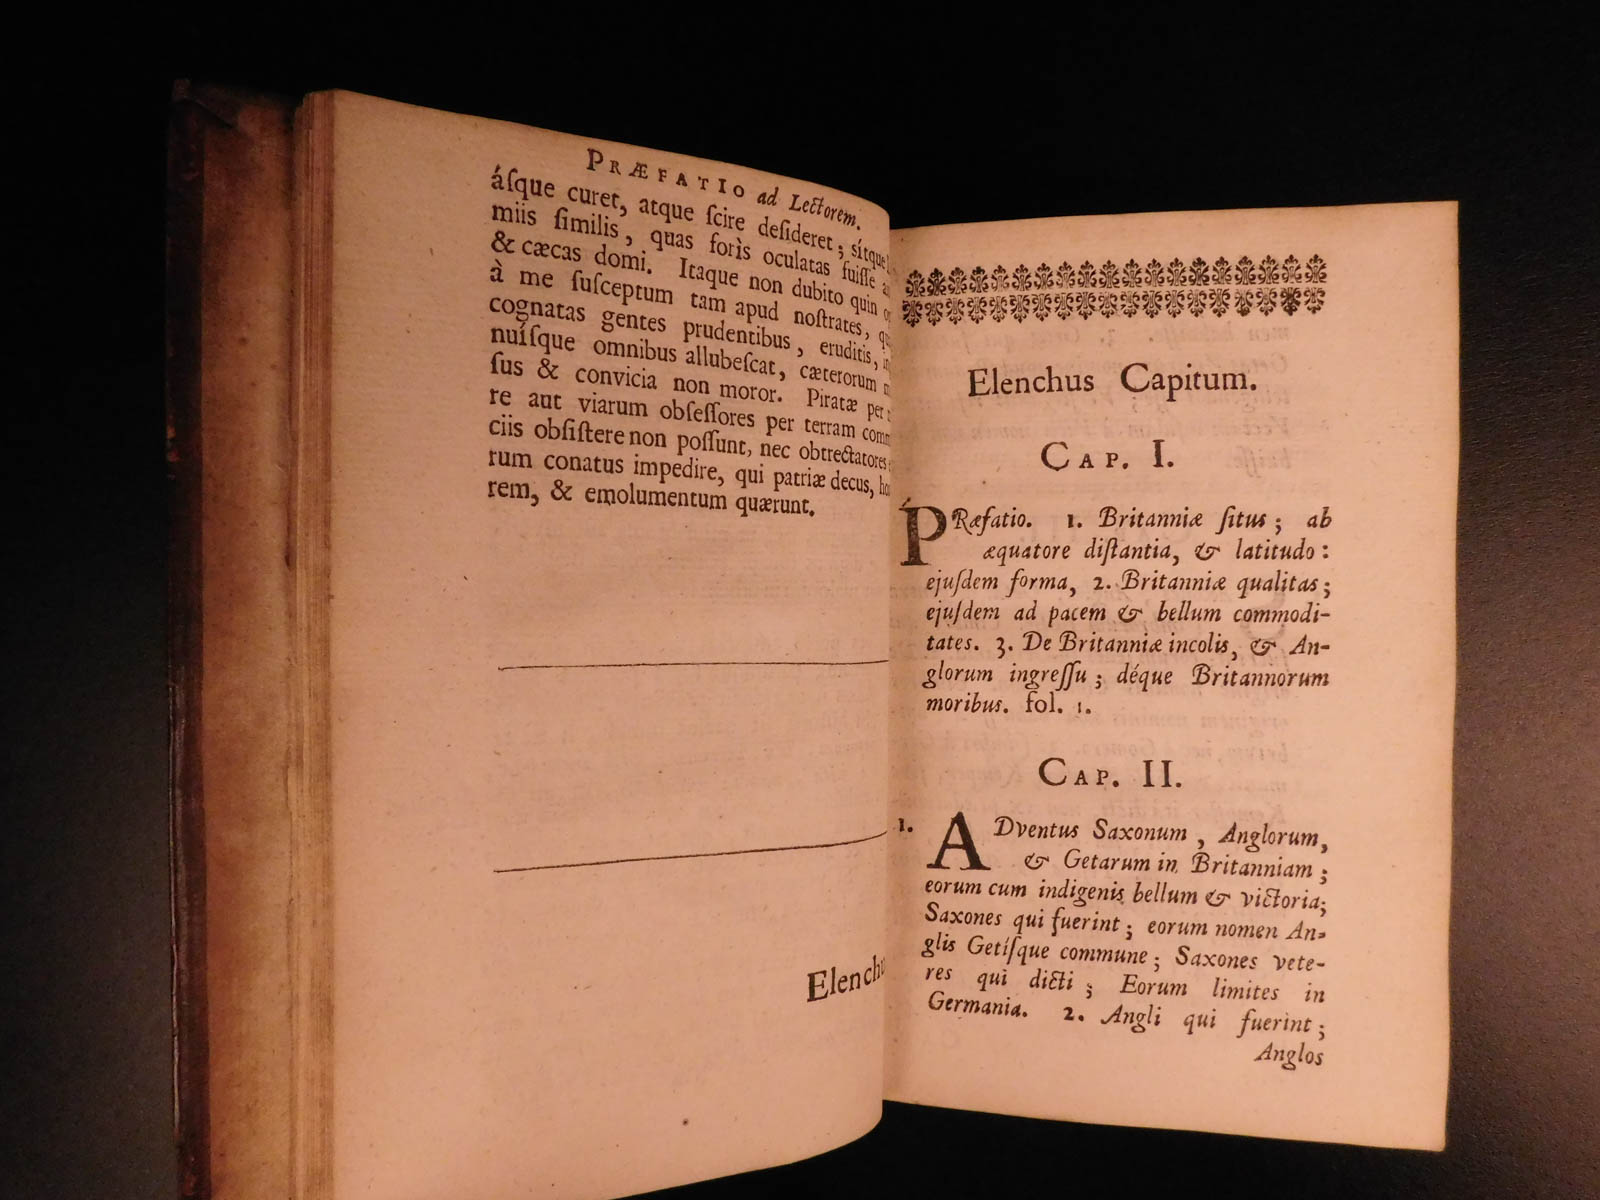 PRÆFATIO ad Lectorem.
ásque curet, atque ſcire deſideret; sítque
miis ſimilis, quas foris oculatas fuiſſe
& cæcas domi. Itaque non dubito quin
à me ſuſceptum tam apud noſtrates,
cognatas gentes prudentibus, eruditis,
nuíſque omnibus allubeſcat, cæterorum
ſus & convicia non moror. Piratæ per
re aut viarum obſeſſores per terram
ciis obſiſtere non poſſunt, nec obtrectatores
rum conatus impedire, qui patriæ decus,
rem, & emolumentum quærunt.
Elenchus Capitum.
CAP. I.
PRæfatio. 1. Britanniæ ſitus; ab
æquatore diſtantia, & latitudo:
ejuſdem forma, 2. Britanniæ qualitas;
ejuſdem ad pacem & bellum commodi-
tates. 3. De Britanniæ incolis, & An-
glorum ingreſſu; déque Britannorum
moribus. fol. 1.
CAP. II.
1. ADventus Saxonum, Anglorum,
& Getarum in Britanniam;
eorum cum indigenis bellum & victoria;
Saxones qui fuerint; eorum nomen An-
glis Getíſque commune; Saxones vete-
res qui dicti; Eorum limites in
Germania. 2. Angli qui fuerint;
Anglos